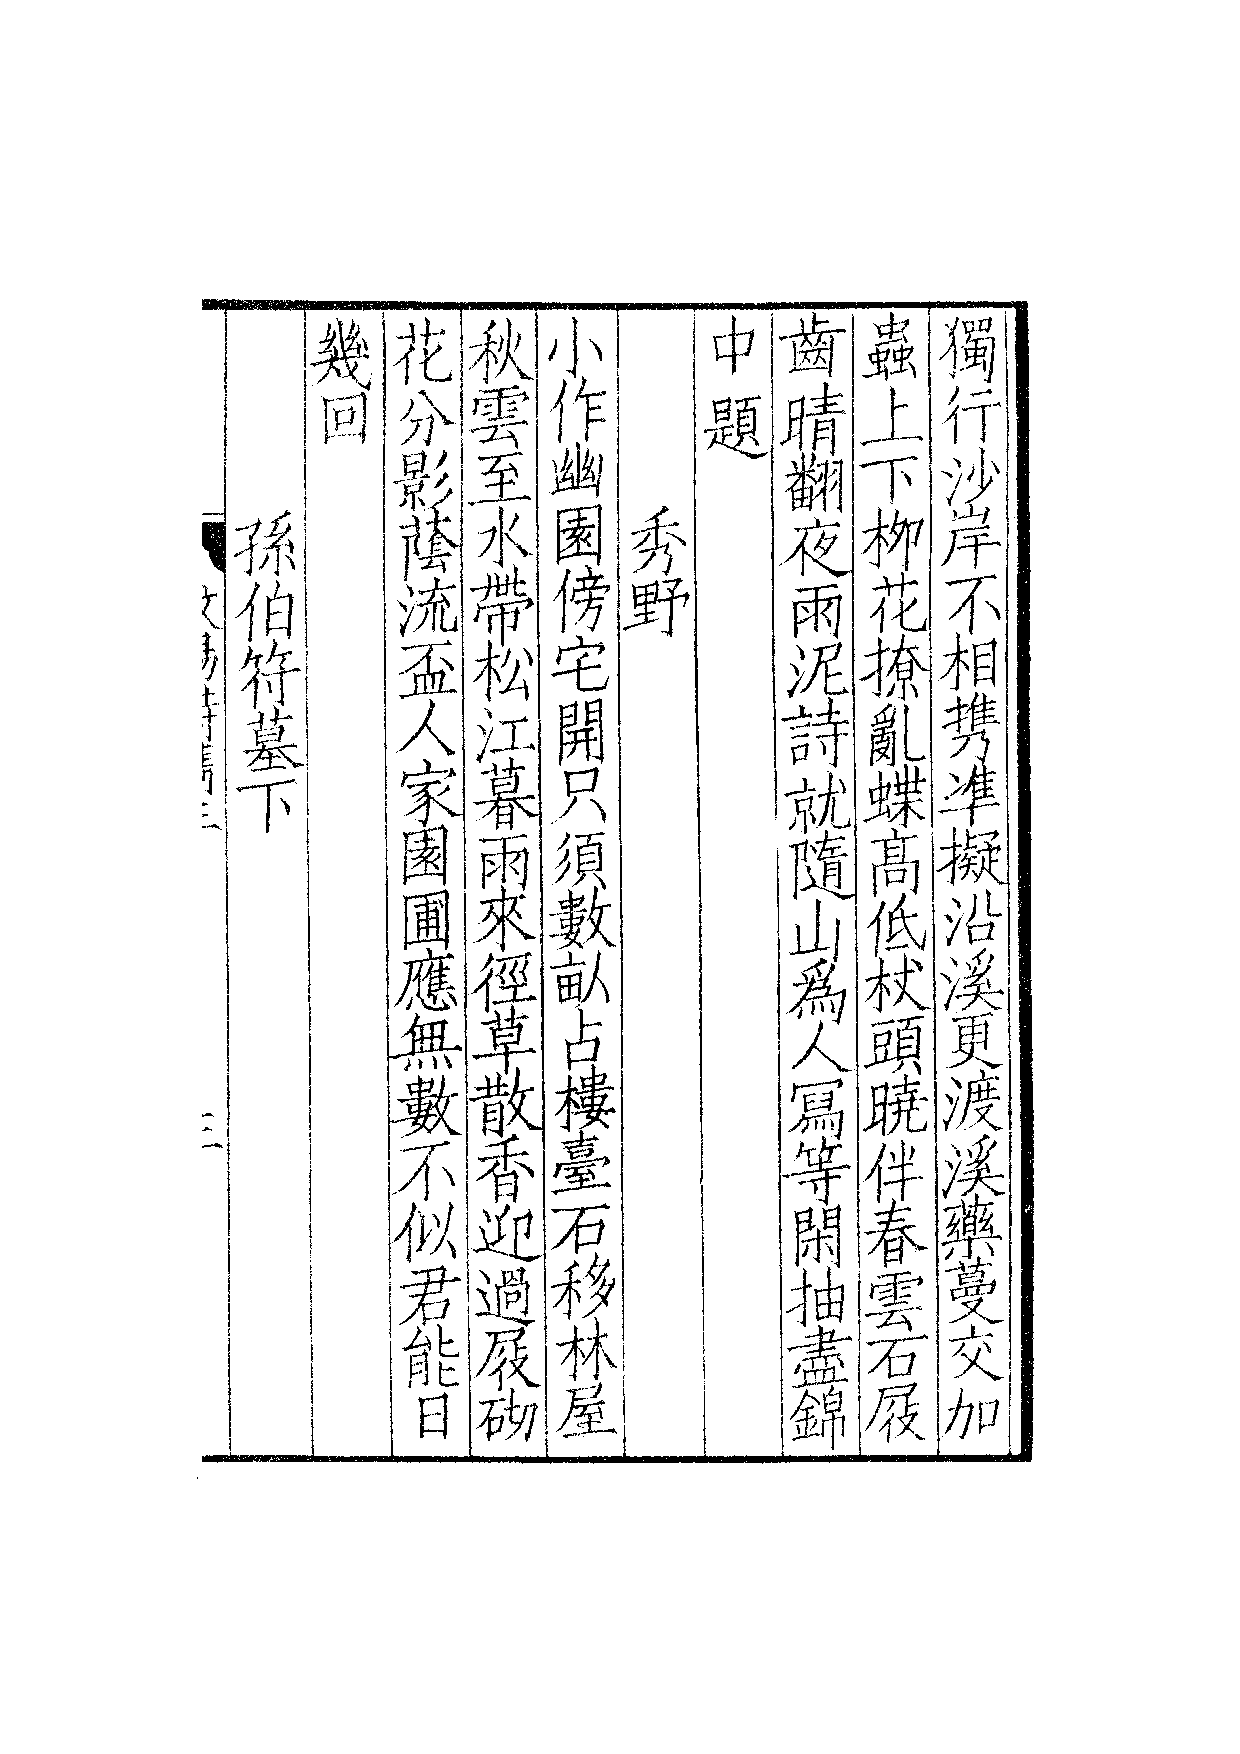 獨行沙岸不相携準擬沿溪更渡溪藥蔓交加
蟲上下柳花撩亂蝶髙低杖頭曉伴春雲石屐
齒晴翻夜雨泥詩就隨山爲人冩等閑抽盡錦
中題
秀野
小作幽園傍宅開只須數畝占樓臺石移林屋
秋雲至水帶松江暮雨來徑草散香迎過屐砌
花分影蔭流盃人家園圃應無數不似君能日
幾回
孫伯符墓下